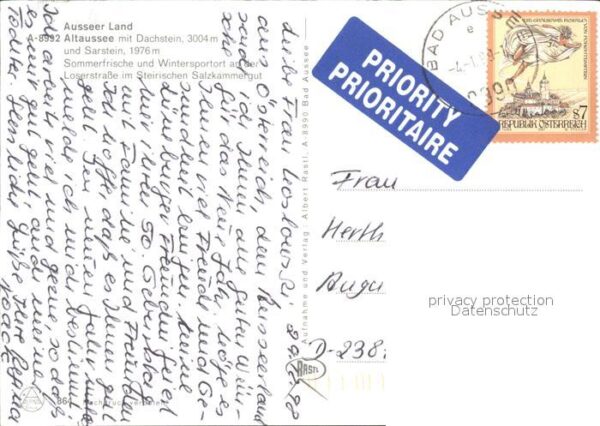 Ausseer Land
A-8992 Altaussee mit Dachstein, 3004 m
und Sarstein, 1976 m
Sommerfrische und Wintersportort an der
Loserstraße im Steirischen Salzkammergut
PRIORITY
PRIORITAIRE
BAD AUSSEE
8990
S7
REPUBLIK ÖSTERREICH
Aufnahme und Verlag: Albert Rastl, A-8990 Bad Aussee
RASTL
864
Liebe Frau
aus Österreich, dem Ausseerland
sende ich Ihnen alle guten Wün-
sche für das Neue Jahr, möge es
Ihnen viel Freude und Ge-
sundheit bringen. Meine
Freundin feiert
hier ihren 50. Geburtstag
mit Familie und Freunden
Ich hoffe, daß es Ihnen gut
geht. Im neuen Jahr
melde ich mich bestimmt.
Ich arbeite viel und gerne, so daß
es mir gut geht und meine
Töchter. Herzliche Grüße Ihre
Frau
Herth
Augu
D-238
privacy protection
Datenschutz